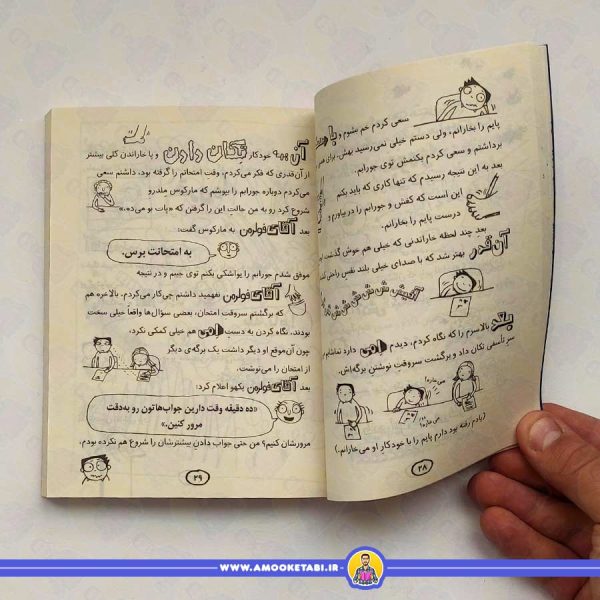 سعی کردم خم بشوم و با
پایم را بخارانم، ولی دستم خیلی نمی‌رسید بهش. برای همین
برداشتم و سعی کردم بکنمش توی جورابم.
بعد به این نتیجه رسیدم که تنها کاری که باید بکنم
این است که کفش و جورابم را در بیاورم و
درست پایم را بخارانم.
بعدِ چند لحظه خاراندنی که خیلی هم خوش گذشت
آن‌قدر بهتر شد که با صدای خیلی بلند نفس راحتی
آخیش ش ش ش ش ش
بعد بالاسرم را که نگاه کردم، دیدم اِمی دارد تماشام
سرِ تأسفی تکان داد و برگشت سروقت نوشتن برگه‌اش.
می‌خاره!
می‌خاره!
(یادم رفته بود دارم پایم را با خودکارِ او می‌خارانم.)
۲۸
آن همه خودکار تکان دادن و پا خاراندن کلی بیشتر
از آن‌قدری که فکر می‌کردم، وقت امتحانم را گرفته بود. داشتم سعی
می‌کردم دوباره جورابم را بپوشم که مارکوس ملدرو
شروع کرد رو به من حالتِ این را گرفتن که «پات بو می‌ده.»
بعد آقای فولرمن به مارکوس گفت:
به امتحانت برس.
موفق شدم جورابم را یواشکی بکنم توی جیبم و در نتیجه
آقای فولرمن نفهمید داشتم چی‌کار می‌کردم. بالاخره هم
که برگشتم سروقت امتحان، بعضی سؤال‌ها واقعاً خیلی سخت
بودند. نگاه کردن به دستِ اِمی هم خیلی کمکی نکرد،
چون آن‌موقع او دیگر داشت یک برگه‌ی دیگر
از امتحان را می‌نوشت.
بعد آقای فولرمن یکهو اعلام کرد:
«ده دقیقه وقت دارین جواب‌هاتون رو به‌دقت
مرور کنین.»
مرورشان کنیم؟ من حتی جواب دادنِ بیشترشان را شروع هم نکرده بودم.
۲۹
WWW.AMOOKETABI.IR